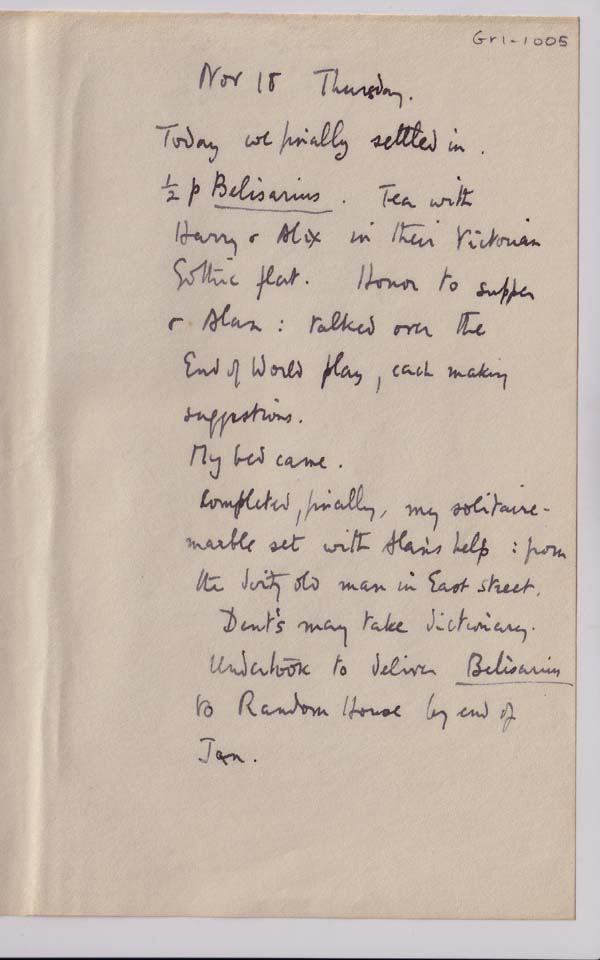 Gr1-1005
Nov 18 Thursday.
Today we finally settled in.
½ p Belisarius. Tea with
Harry & Alix in their Victorian
Gothic flat. Honor to supper
& Alan: talked over the
End of World play, each making
suggestions.
My bed came.
Completed, finally, my solitaire-
marble set with Alan's help: from
the dirty old man in East street.
Dent's may take dictionary.
Undertook to deliver Belisarius
to Random House by end of
Jan.